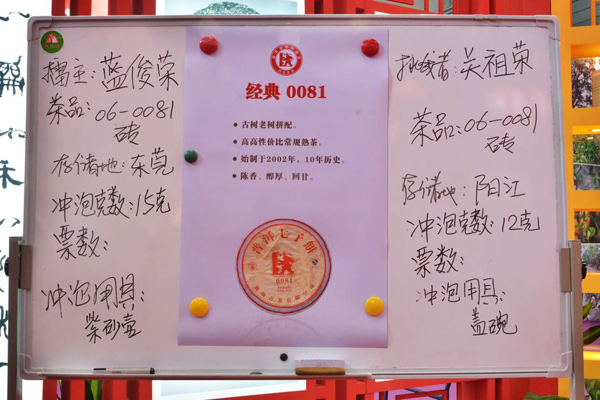 擂主：蓝俊荣
茶品：06-0081
砖
存储地：东莞
冲泡克数：15克
票数：
冲泡用具：
紫砂壶
经典 0081
古树老树拼配。
高性价比常规熟茶。
始制于2002年，10年历史。
陈香、醇厚、回甘。
普洱七子饼
0081
挑战者：关祖荣
茶品：06-0081
砖
存储地：阳江
冲泡克数：12克
票数：
冲泡用具：
盖碗